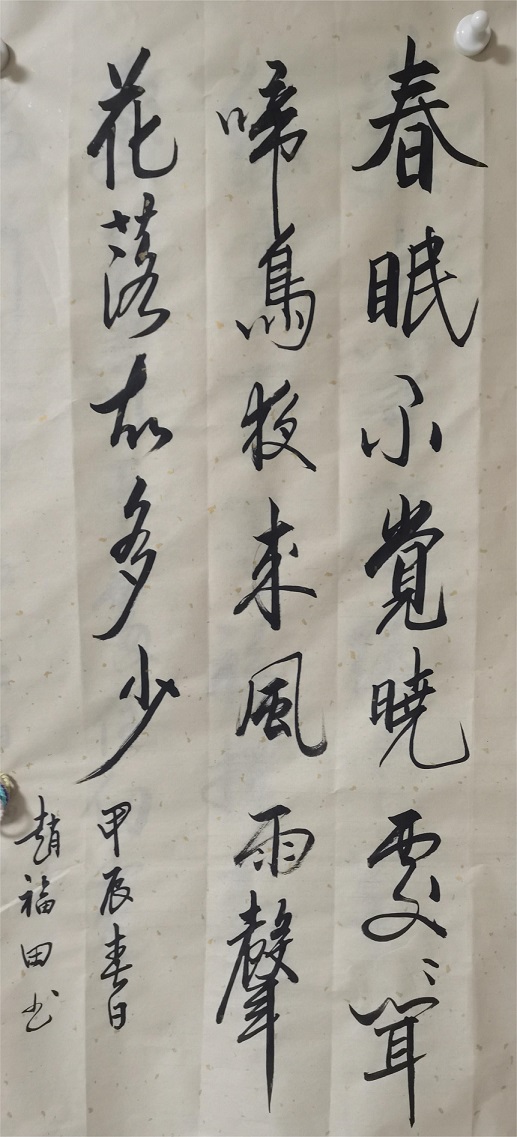 春眠不覺曉處〻聞
啼鳥夜來風雨聲
花落知多少甲辰春日
趙福田书